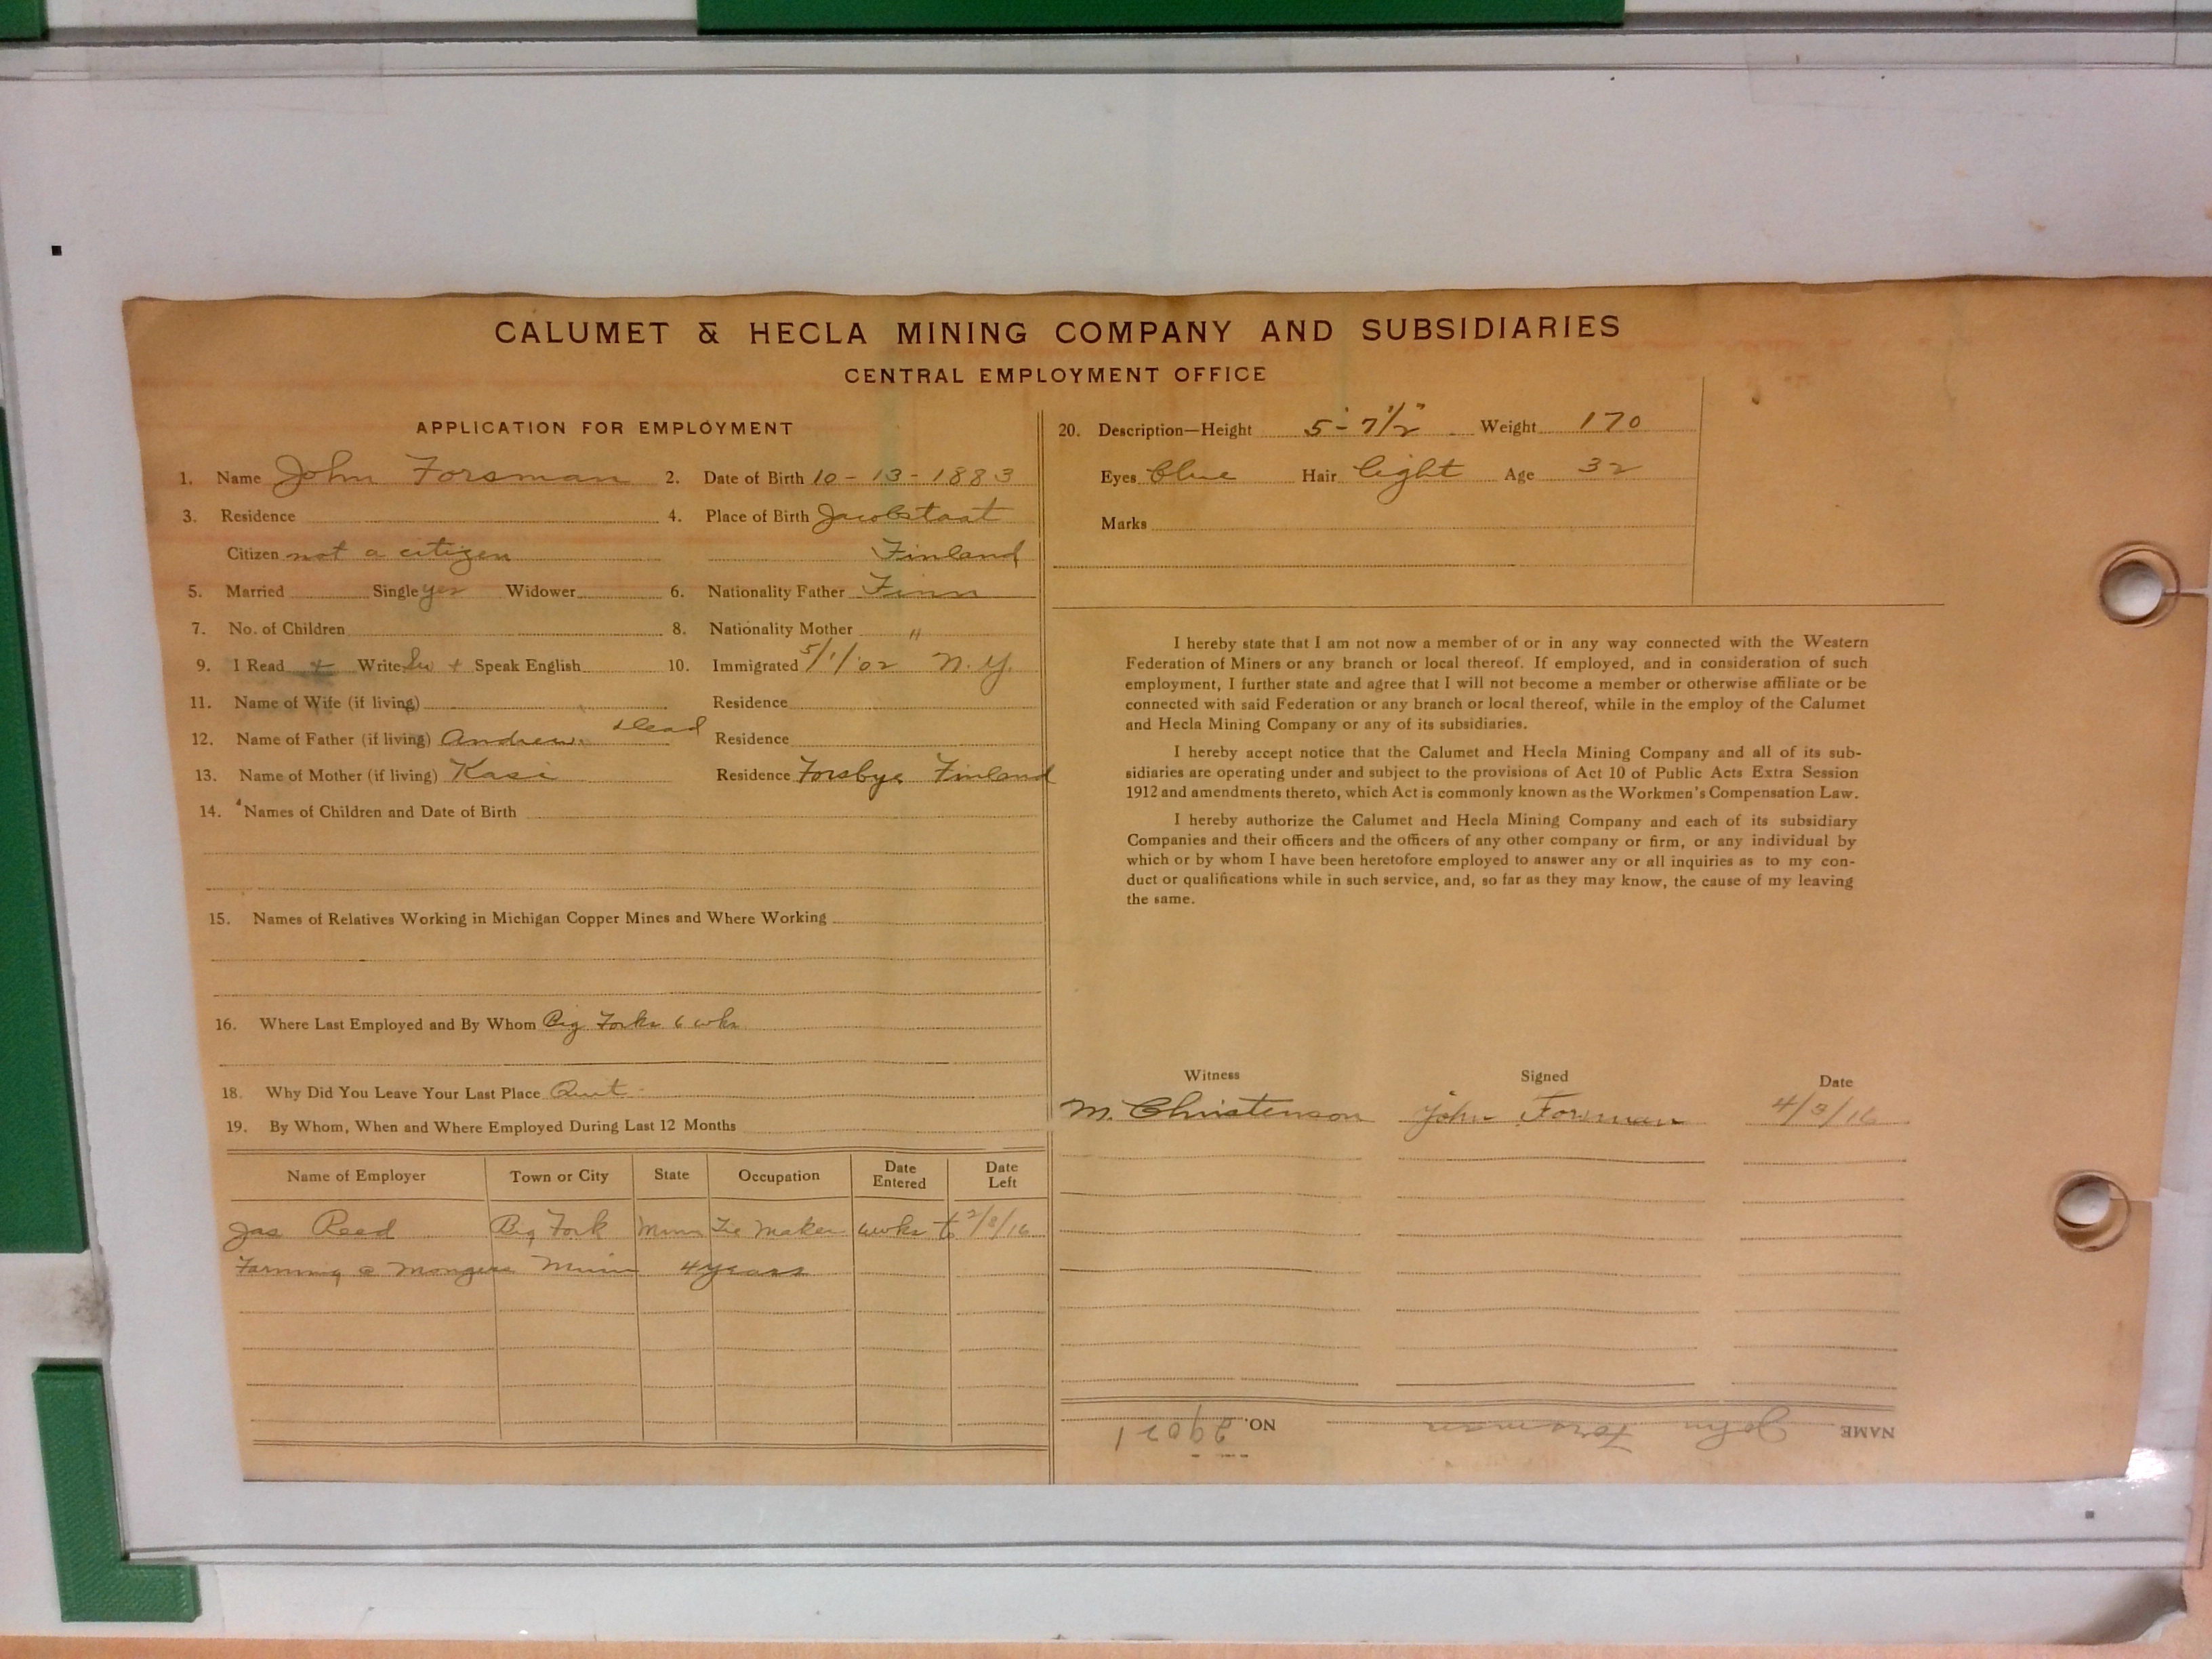 CALUMET & HECLA MINING COMPANY AND SUBSIDIARIES
CENTRAL EMPLOYMENT OFFICE
APPLICATION FOR EMPLOYMENT
1. Name John Forsman 2. Date of Birth 10-13-1883
3. Residence 4. Place of Birth Jacobstaat
Citizen not a citizen Finland
5. Married Single yes Widower 6. Nationality Father Finn
7. No. of Children 8. Nationality Mother "
9. I Read + Write Sw + Speak English 10. Immigrated 5/1/02 N.Y.
11. Name of Wife (if living) Residence
12. Name of Father (if living) Andrew. Dead Residence
13. Name of Mother (if living) Kasi Residence Forsby Finland
14. Names of Children and Date of Birth
15. Names of Relatives Working in Michigan Copper Mines and Where Working
16. Where Last Employed and By Whom Big Forks 6 wks
18. Why Did You Leave Your Last Place Quit
19. By Whom, When and Where Employed During Last 12 Months
Name of Employer Town or City State Occupation Date Entered Date Left
Jas Reed Big Fork Minn Tie Maker 6wks to 2/3/16
Farming @ Minn 4 years
20. Description—Height 5'-7 1/2" Weight 170
Eyes blue Hair light Age 32
Marks
I hereby state that I am not now a member of or in any way connected with the Western
Federation of Miners or any branch or local thereof. If employed, and in consideration of such
employment, I further state and agree that I will not become a member or otherwise affiliate or be
connected with said Federation or any branch or local thereof, while in the employ of the Calumet
and Hecla Mining Company or any of its subsidiaries.
I hereby accept notice that the Calumet and Hecla Mining Company and all of its sub-
sidiaries are operating under and subject to the provisions of Act 10 of Public Acts Extra Session
1912 and amendments thereto, which Act is commonly known as the Workmen's Compensation Law.
I hereby authorize the Calumet and Hecla Mining Company and each of its subsidiary
Companies and their officers and the officers of any other company or firm, or any individual by
which or by whom I have been heretofore employed to answer any or all inquiries as to my con-
duct or qualifications while in such service, and, so far as they may know, the cause of my leaving
the same.
Witness Signed Date
M. Christenson John Forsman 4/3/16
NAME John Forsman NO. 29021